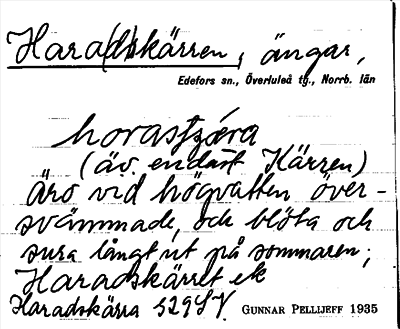 Hara(ds)kärren, ängar,
Edefors sn., Överluleå tg., Norrb. län
(äv. endast Kärren)
äro vid högvatten över-
svämmade, och blöta och
sura långt ut på sommaren;
Haradskärret ek
Haradskärra 529 SV.
GUNNAR PELLIJEFF 1935